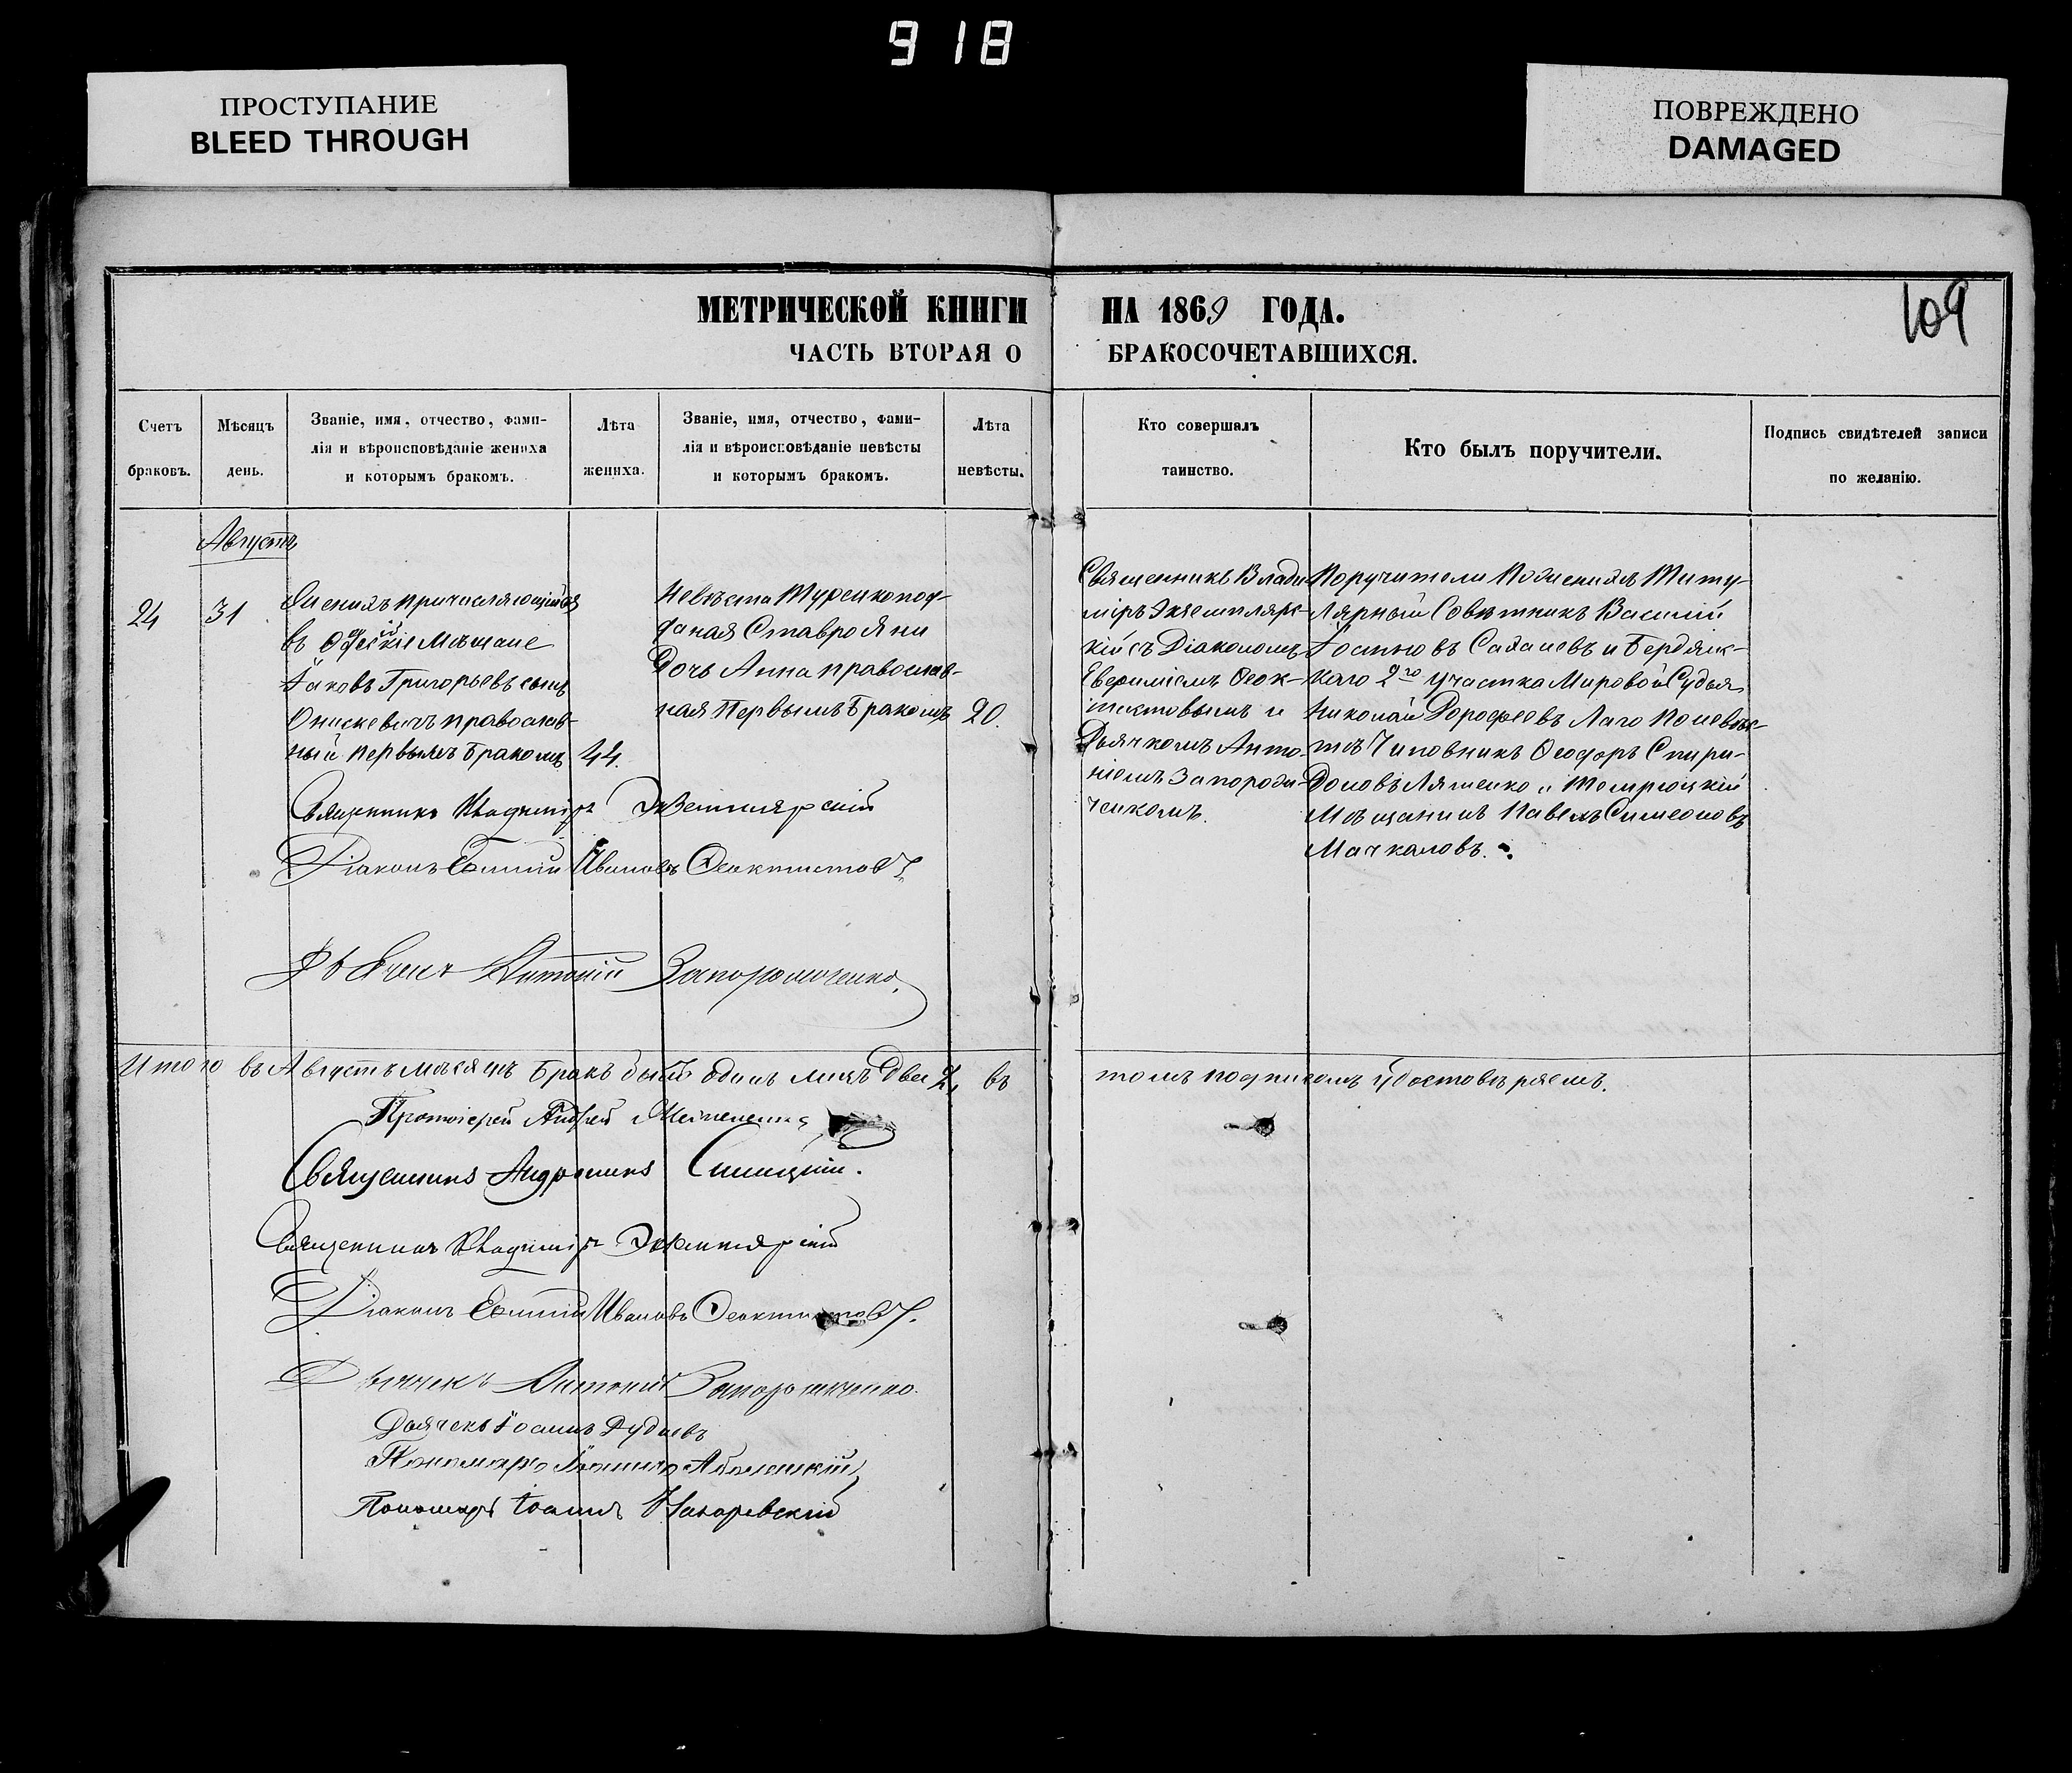 918
ПРОСТУПАНИЕ
BLEED THROUGH
ПОВРЕЖДЕНО
DAMAGED
МЕТРИЧЕСКОЙ КНИГИ НА 1869 ГОДА.
109
ЧАСТЬ ВТОРАЯ О БРАКОСОЧЕТАВШИХСЯ.
Счетъ
браковъ.
Мѣсяцъ
день.
Званіе, имя, отчество, фами-
лія и вѣроисповѣданіе жениха
и которымъ бракомъ.
Лѣта
жениха.
Званіе, имя, отчество, фами-
лія и вѣроисповѣданіе невѣсты
и которымъ бракомъ.
Лѣта
невѣсты.
Кто совершалъ
таинство.
Кто былъ поручители.
Подпись свидѣтелей записи
по желанію.
Августъ
24
31
Женихъ причисляющійся
въ Одескіе Мѣщане
Іаковъ Григорьевъ сынъ
Онискевичъ православ-
ный первымъ бракомъ
44.
Невѣста Турецкопод-
даная Ставрояни
Дочь Анна православ-
ная Первымъ Бракомъ
20.
Священникъ Влади-
міръ Экземпляр-
кій съ Діакономъ
Евфиміемъ Ѳеок-
тистовымъ и
Дьячкомъ Анто-
ніемъ Запорож-
ченкомъ.
Поручители По женихѣ Титу-
лярный Совѣтникъ Василій
и Бердянс-
каго 2го участка Мировой Судья
Николай Дороѳеевъ Лаго По невѣс-
тѣ Чиновникъ Ѳеодоръ Спири-
доновъ Ляшенко и Темрюцкій
Мѣщанинъ Павелъ Симеоновъ
Мачкаловъ.
Священникъ Владиміръ Экземплярскій
Діаконъ Евфимій Ивановъ Ѳеоктистовъ
Дьячекъ Антоній Запорожченко.
Итого въ Августѣ мѣсяцѣ Бракъ былъ Одинъ лицъ Два 2, въ томъ подписомъ удостовѣряемъ.
Протоіерей Андрей
Священникъ Синицкій.
Священникъ Владиміръ Экземплярскій
Діаконъ Евфимій Ивановъ Ѳеоктистовъ.
Дьячекъ Антоній Запорожченко.
Дьячекъ Іоаннъ Рудневъ
Пономарь Іоаннъ
Пономарь Іоаннъ